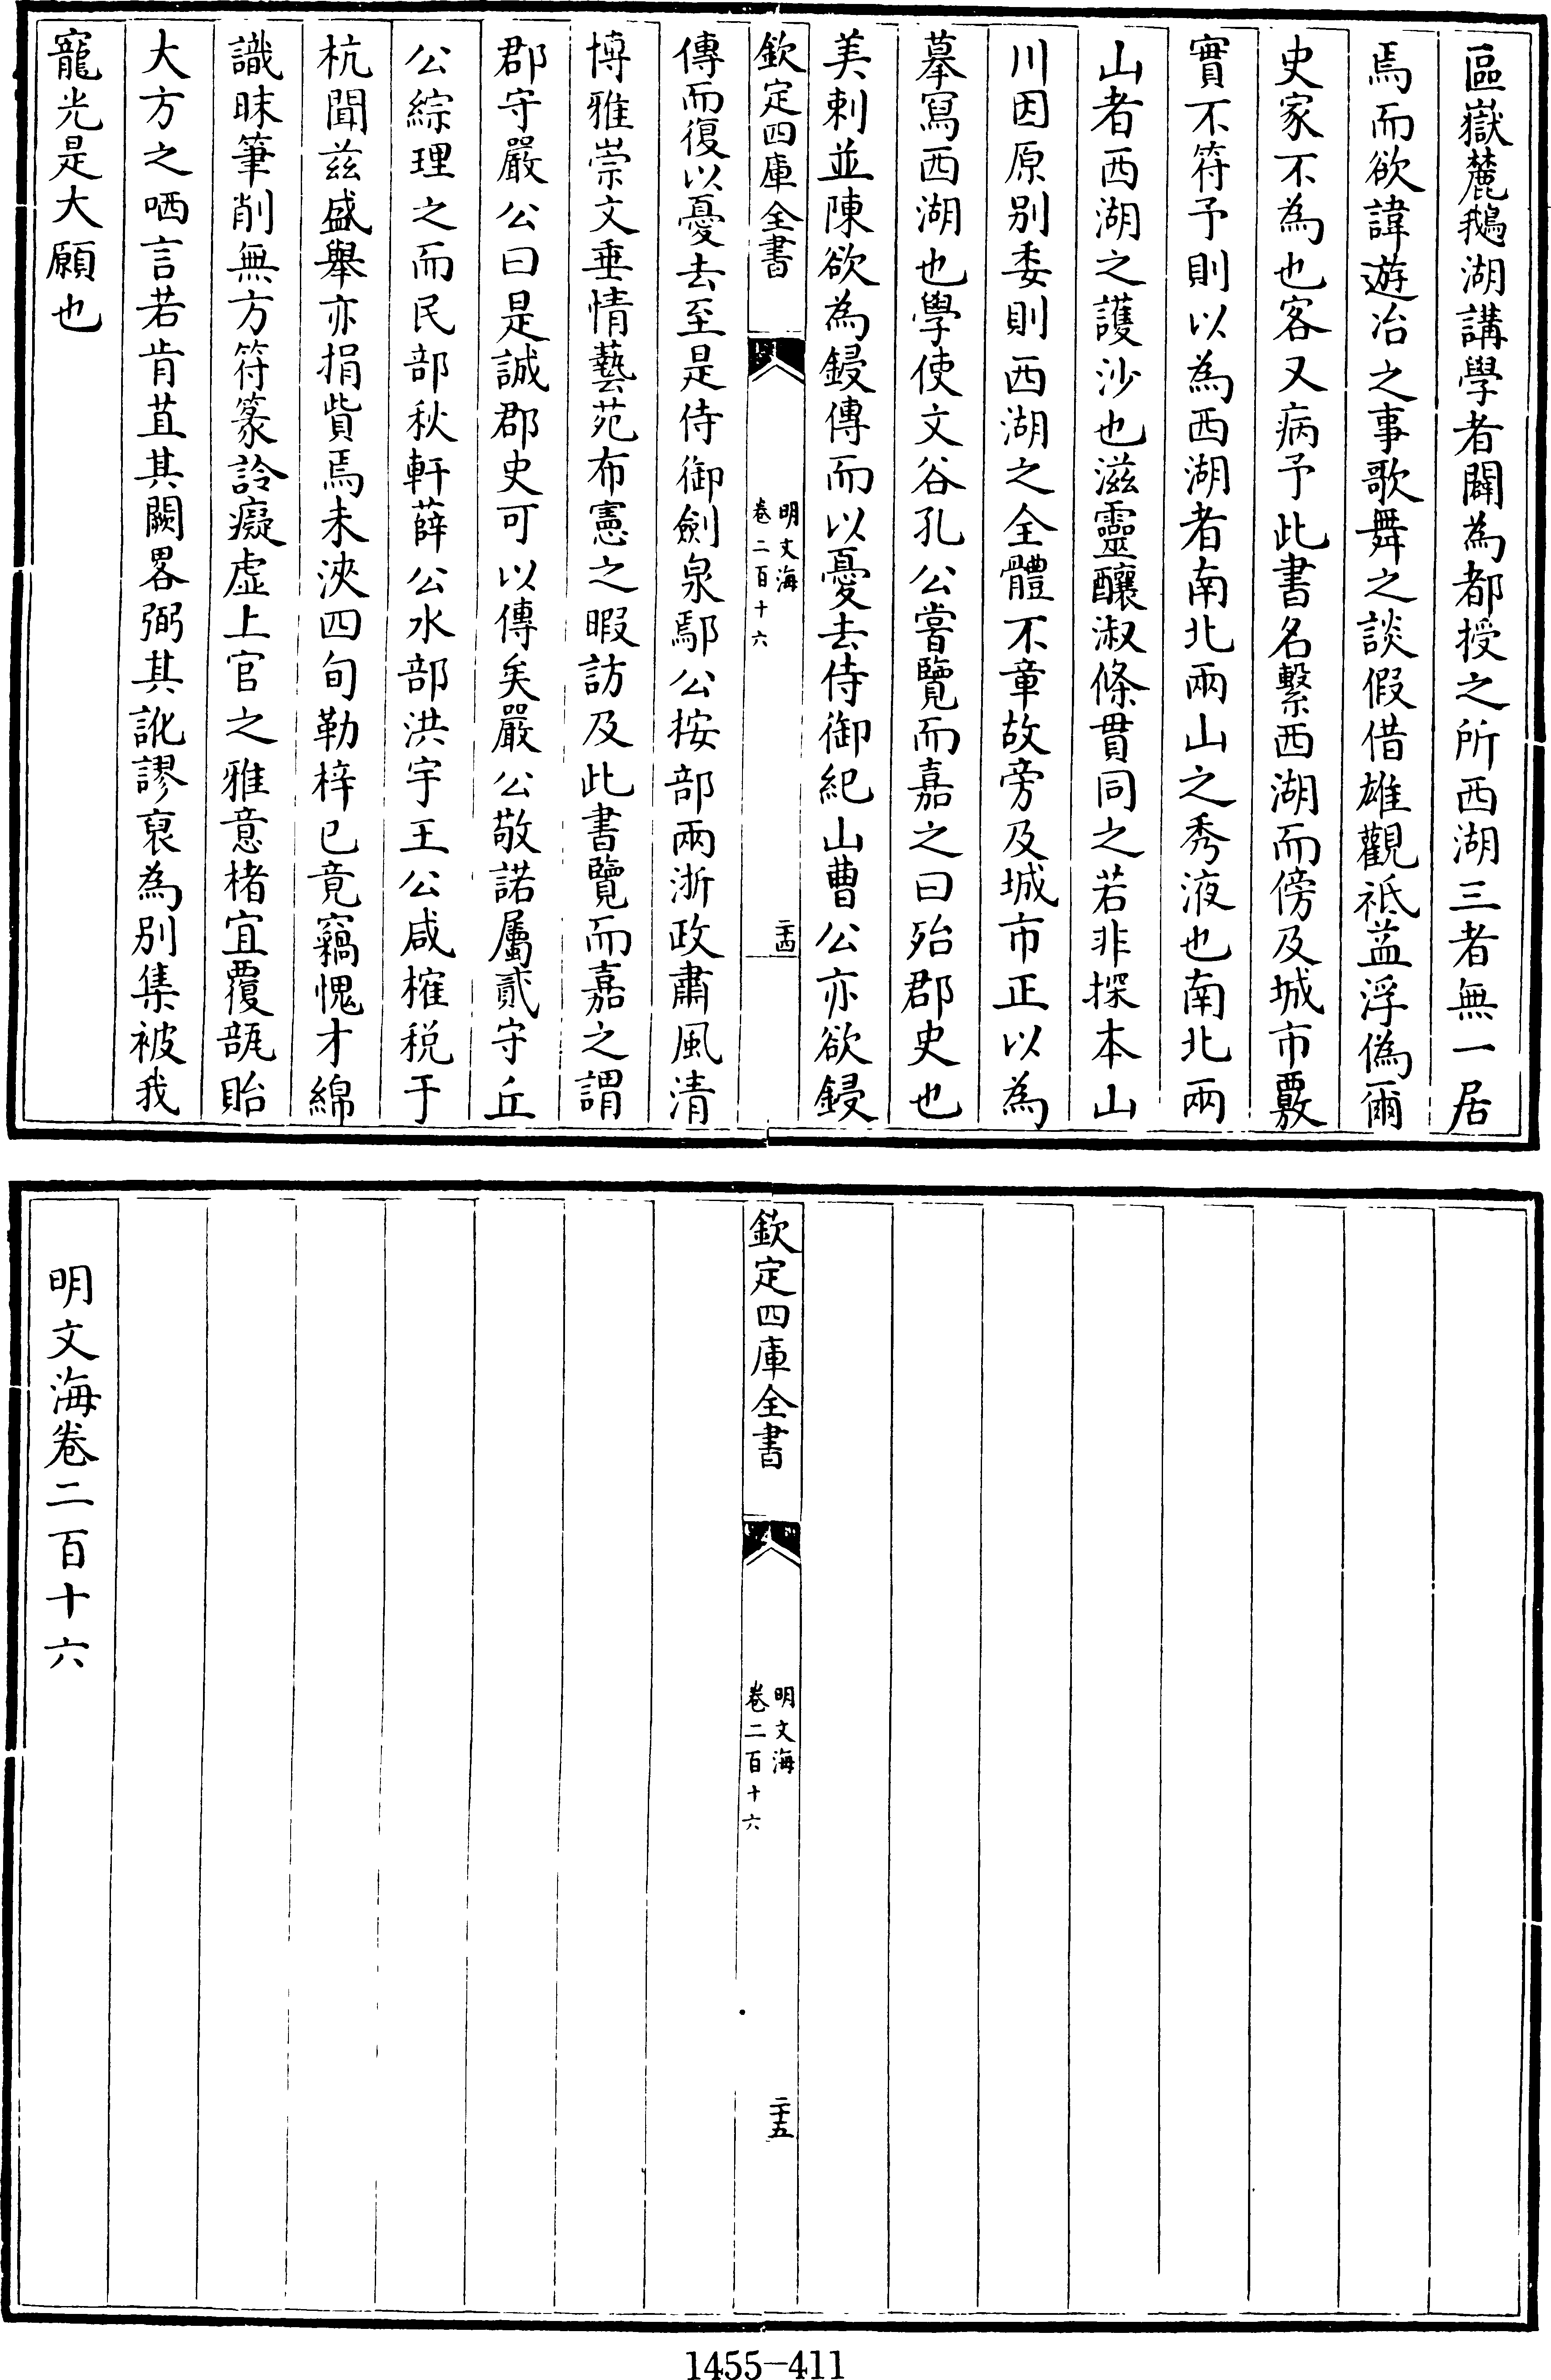 區嶽麓鵝湖講學者闢為都授之所西湖三者無一居
焉而欲諱遊冶之事歌舞之談假借雄觀祗益浮偽爾
史家不為也客又病予此書名繫西湖而傍及城市覈
實不符予則以為西湖者南北兩山之秀液也南北兩
山者西湖之護沙也滋靈釀淑條貫同之若非探本山
川因原别委則西湖之全體不章故旁及城市正以為
摹寫西湖也學使文谷孔公嘗覽而嘉之曰殆郡史也
美刺並陳欲為鋟傳而以憂去侍御紀山曹公亦欲鋟
欽定四庫全書
明文海
卷二百十六
二十四
傳而復以憂去至是侍御劍泉鄢公按部兩浙政肅風清
博雅崇文垂情藝苑布憲之暇訪及此書覽而嘉之謂
郡守嚴公曰是誠郡史可以傳矣嚴公敬諾屬貳守丘
公綜理之而民部秋軒薛公水部洪宇王公咸榷税于
杭聞茲盛舉亦捐貲焉未浹四旬勒梓已竟竊愧才綿
識昧筆削無方符篆詅癡虚上官之雅意楮宜覆瓿貽
大方之哂言若肯苴其闕畧弼其訛謬裒為别集被我
寵光是大願也
欽定四庫全書
明文海
卷二百十六
二十五
明文海卷二百十六
1455-411